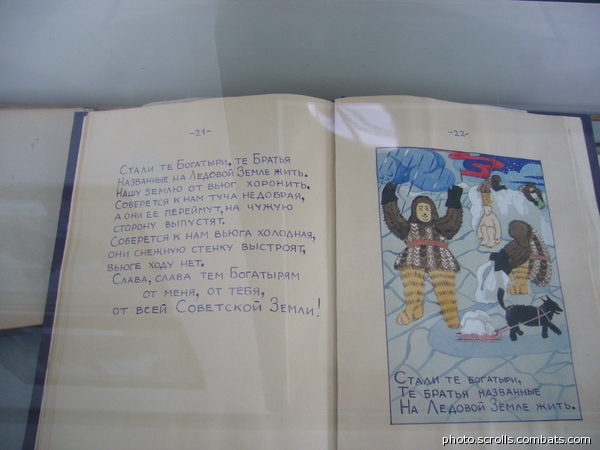 -21-
Стали те Богатыри, те Братья
Названные на Ледовой Земле жить.
Нашу землю от вьюг хоронить.
Соберется к нам туча недобрая,
а они ее переймут, на чужую
сторону выпустят.
Соберется к нам вьюга холодная,
они снежную стенку выстроят,
вьюге ходу нет.
Слава, слава тем Богатырям
от меня, от тебя,
от всей Советской Земли!
-22-
Стали те богатыри,
Те братья названные
На Ледовой Земле жить.
photo.scrolls.combats.com